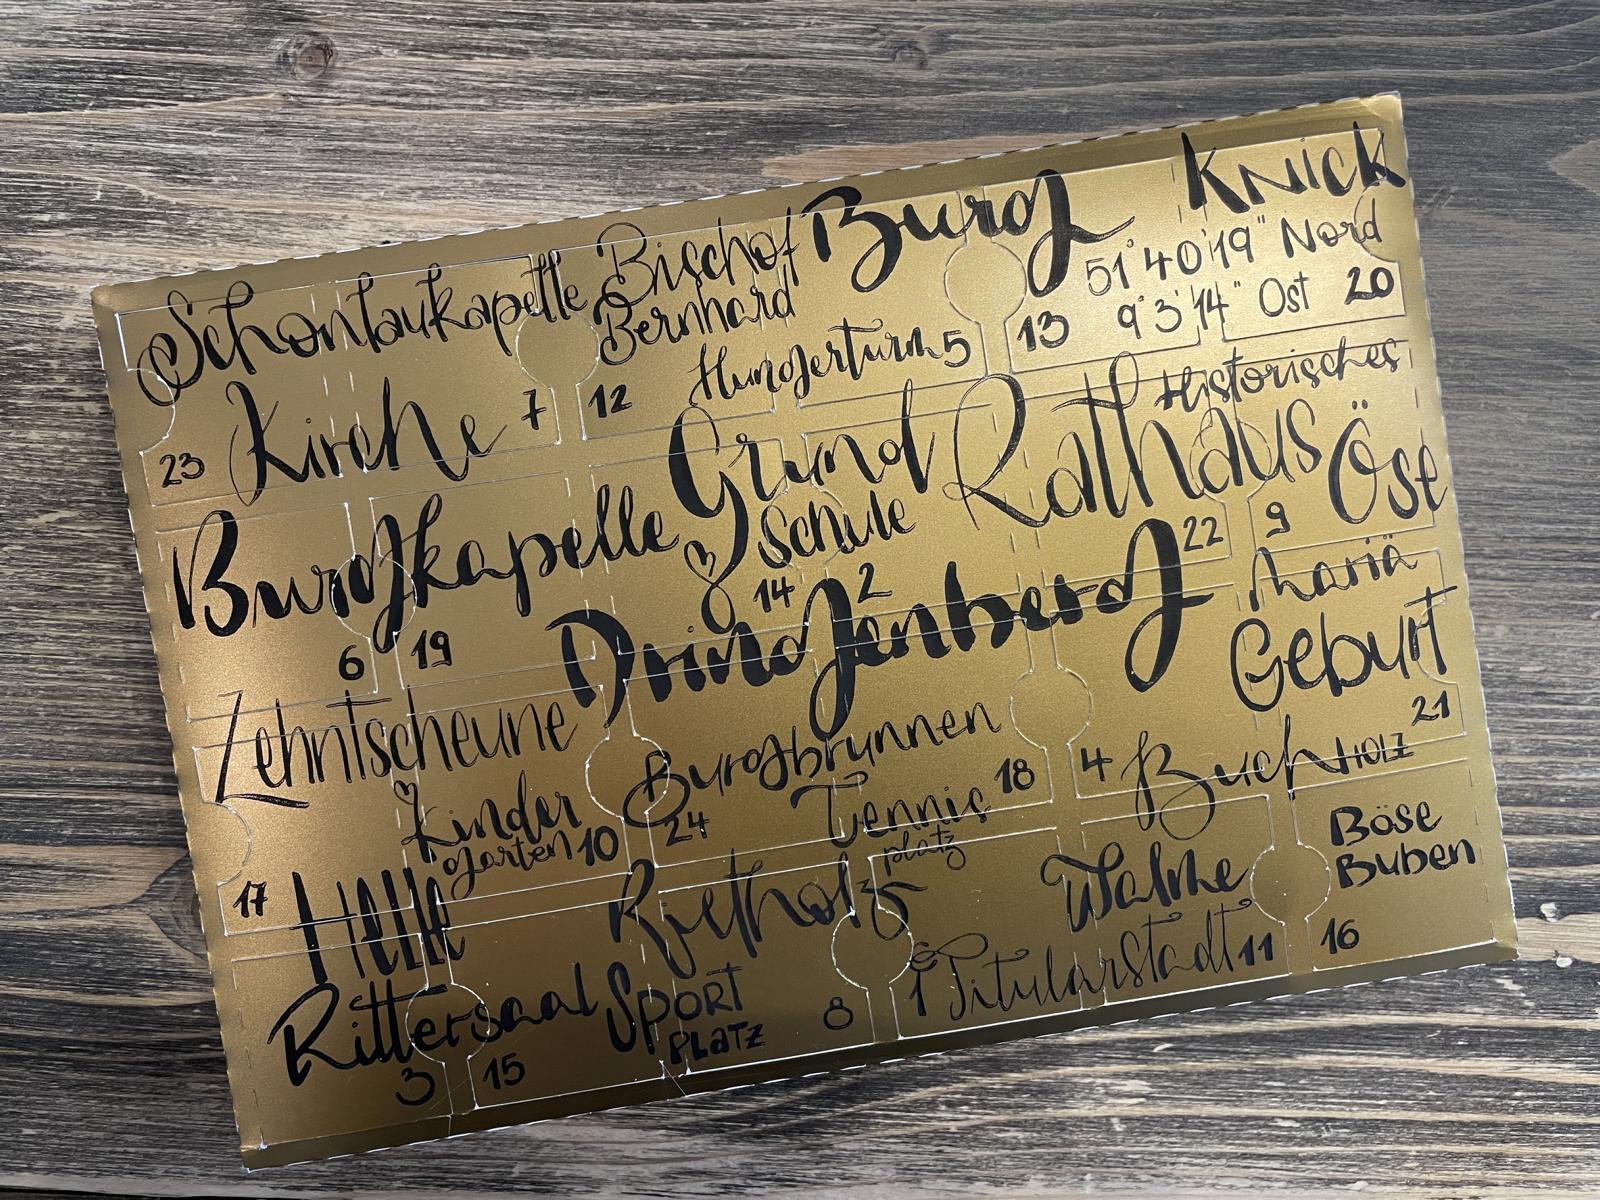 Schonlaukapelle
Bischof
Bernhard
Burg
Knick
51°40'19" Nord
9°3'14" Ost
20
13
Hungerturm 5
12
7
Kirche
23
Historisches
Rathaus
Grund
Schule
14
2
22
9
Öse
Burgkapelle
6
19
Dringenberg
Mariä
Geburt
21
Zehntscheune
Kinder
garten 10
17
Burgbrunnen
24
Tennis
platz
18
4
Buchholz
Böse
Buben
16
Helle
Rietholz
Walme
Titularstadt 11
1
Rittersaal
3
15
Sport
Platz
8